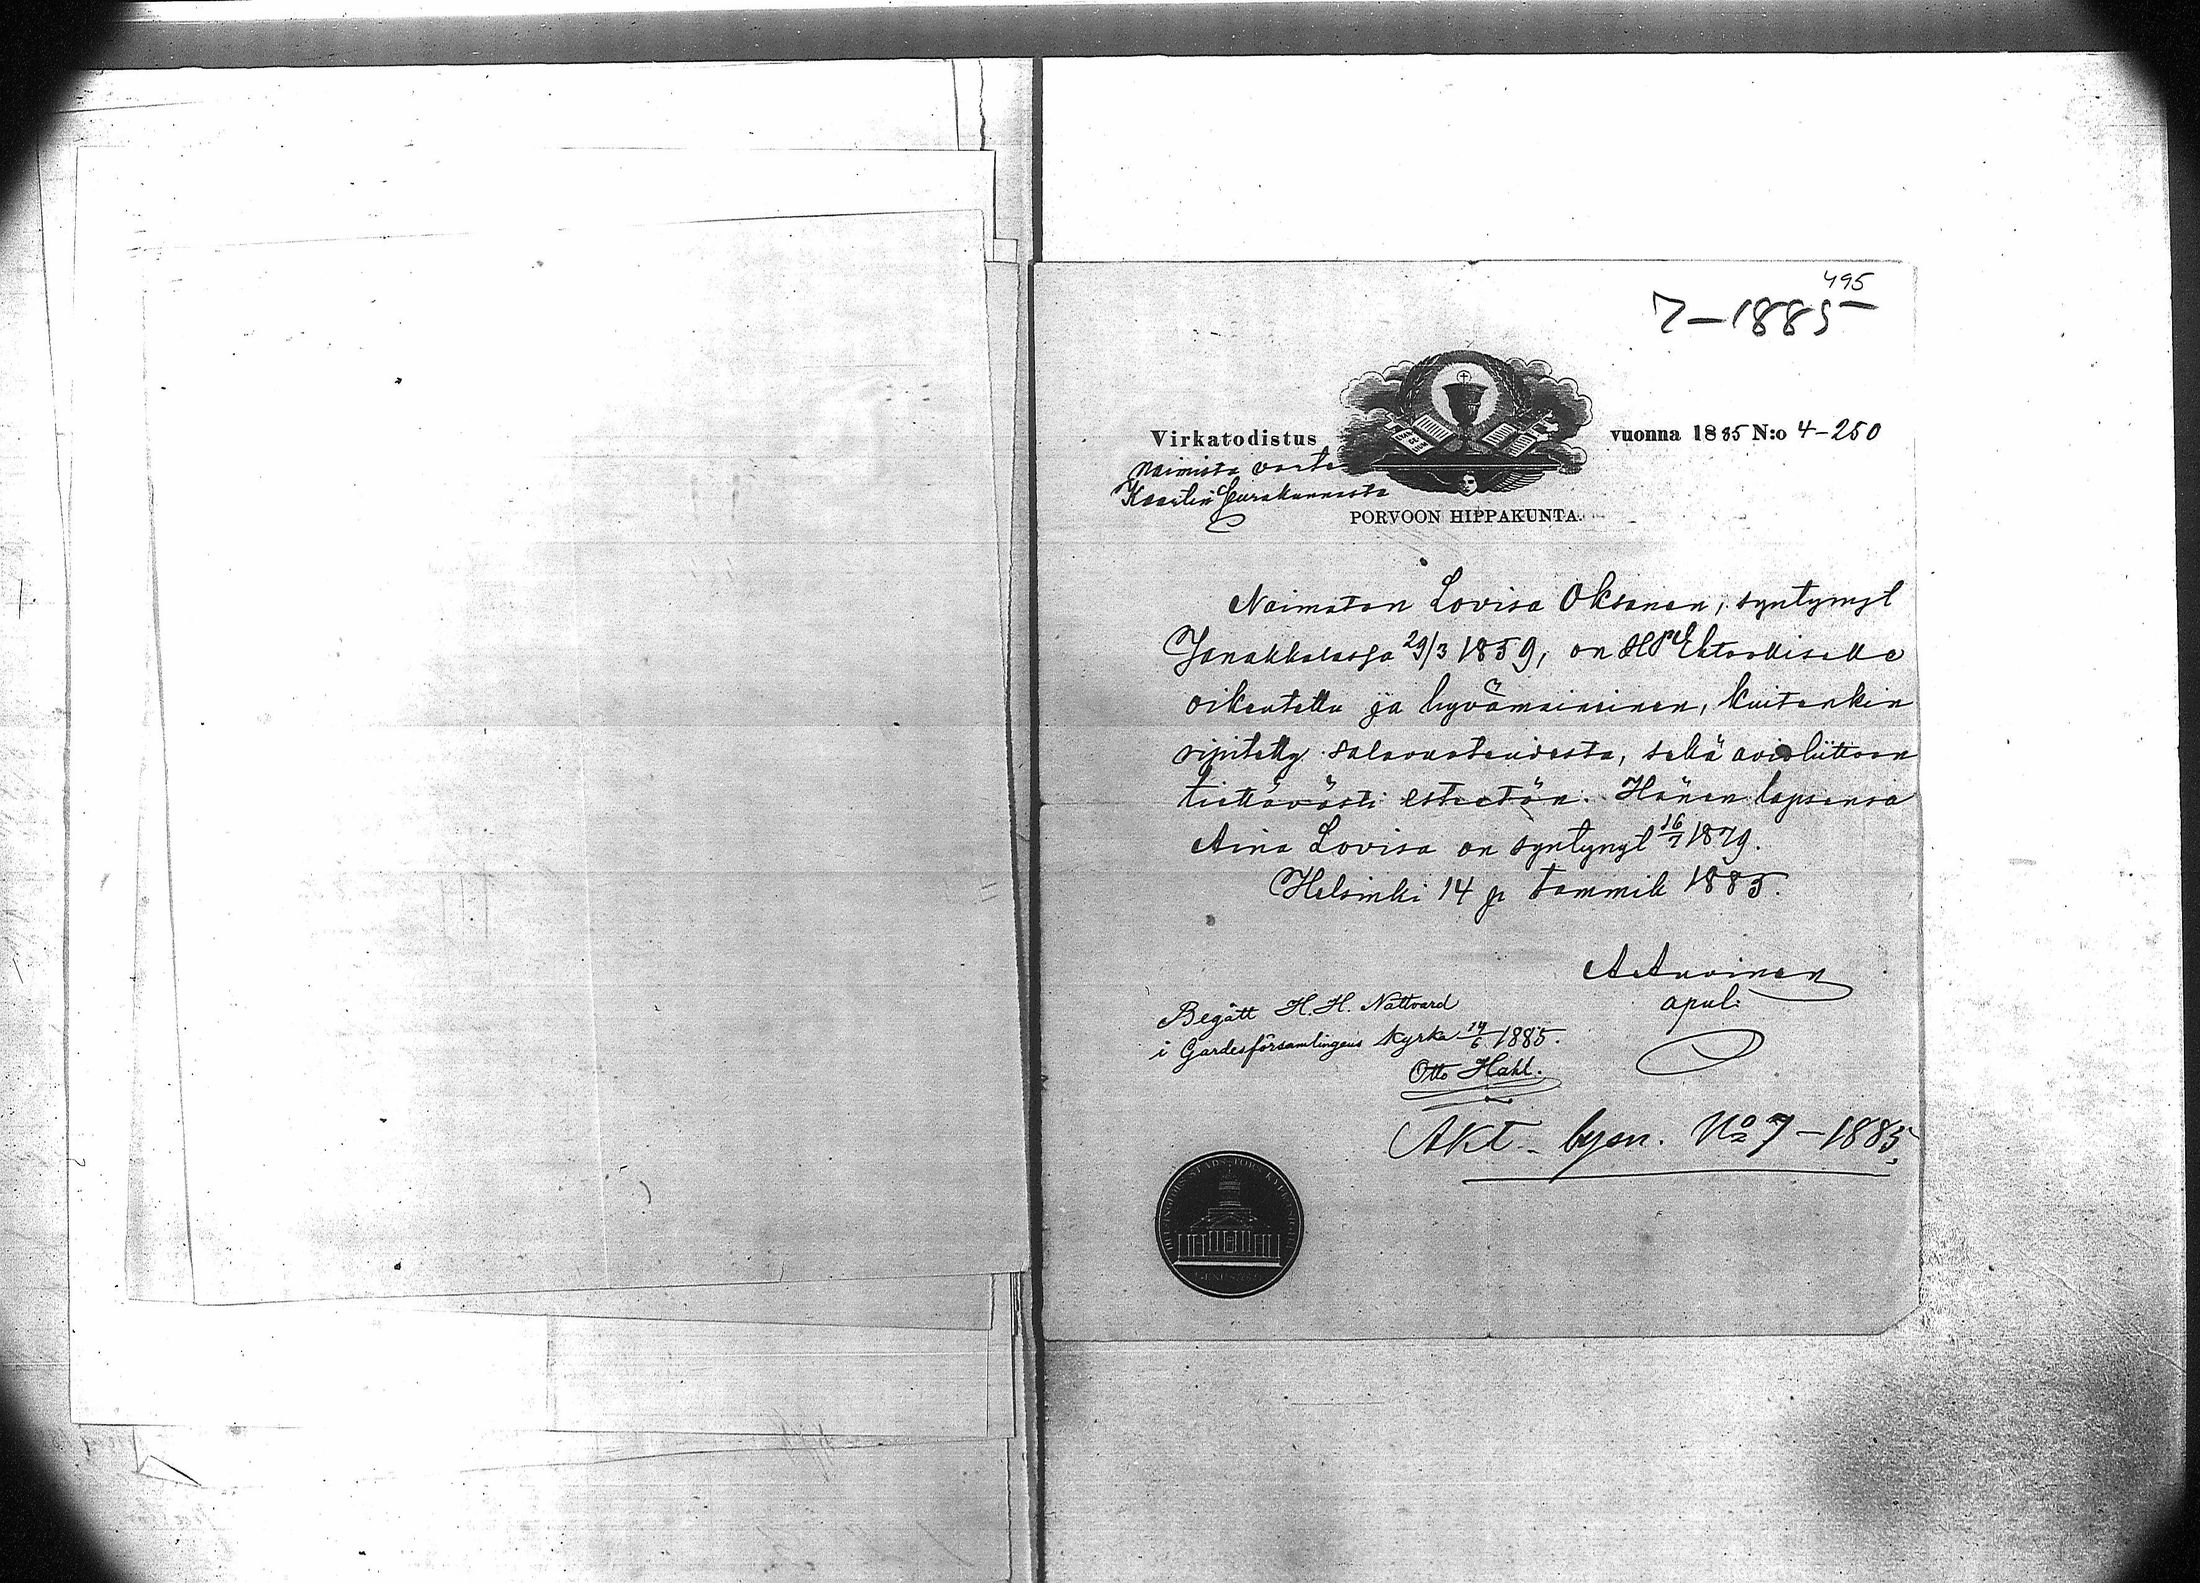 495
7-1885
Virkatodistus vuonna 1885 N:o 4-250
Naimista varten
Kaartin Seurakunnasta
PORVOON HIPPAKUNTA.
Naimaton Lovisa Oksanen, syntynyt
Janakkalassa 29/3 1859, on HPEhtoolliselle
oikeutettu ja hyvämaineinen, kuitenkin
ripitetty salavuoteudesta, sekä avioliittoon
tiettävästi esteetön. Hänen lapsensa
Aina Lovisa on syntynyt 16/7 1879.
Helsinki 14 p tammik 1885.
A Auvinen
apul.
Begått H. H. Nattvard
i Gardesförsamlingens kyrka 14/6 1885.
Otto Hahl.
Akt. lysn. No 7-1885.